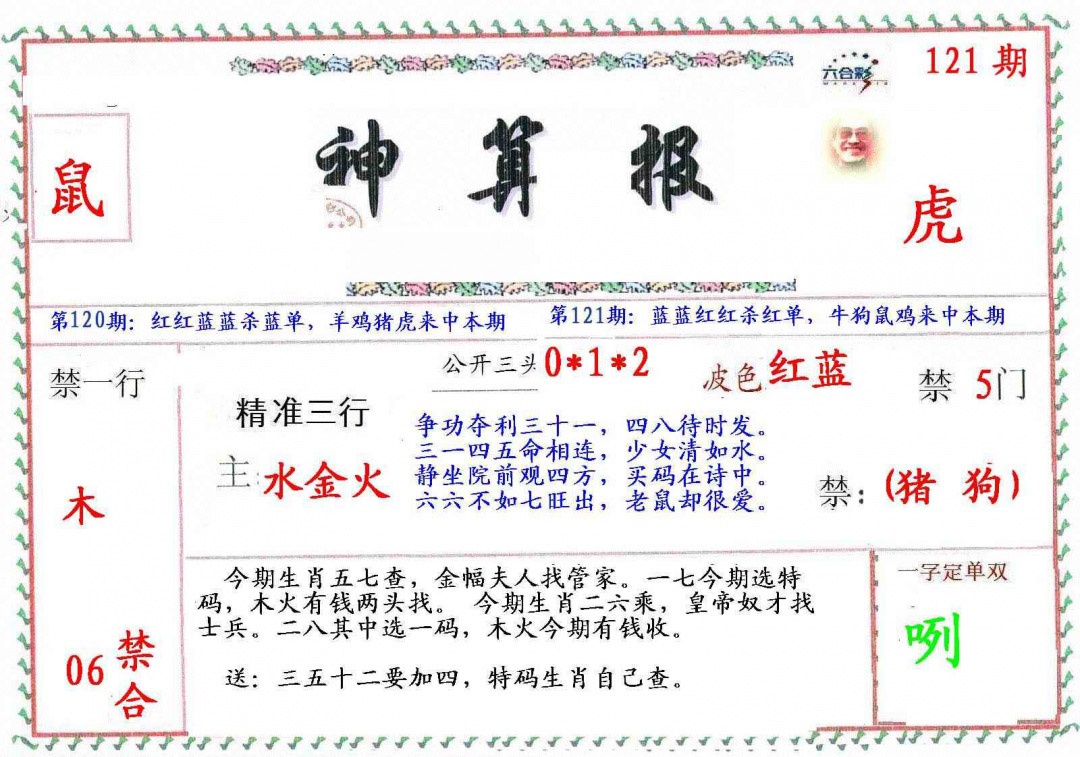 121期
六合彩
神算报
鼠
虎
第120期：红红蓝蓝杀蓝单，羊鸡猪虎来中本期
第121期：蓝蓝红红杀红单，牛狗鼠鸡来中本期
禁一行
木
06
禁合
公开三头0*1*2
波色红蓝
禁 5门
精准三行
主：水金火
争功夺利三十一，四八待时发。
三一四五命相连，少女清如水。
静坐院前观四方，买码在诗中。
六六不如七旺出，老鼠却很爱。
禁：(猪 狗)
今期生肖五七查，金幅夫人找管家。一七今期选特
码，木火有钱两头找。 今期生肖二六乘，皇帝奴才找
士兵。二八其中选一码，木火今期有钱收。
送：三五十二要加四，特码生肖自己查。
一字定单双
咧